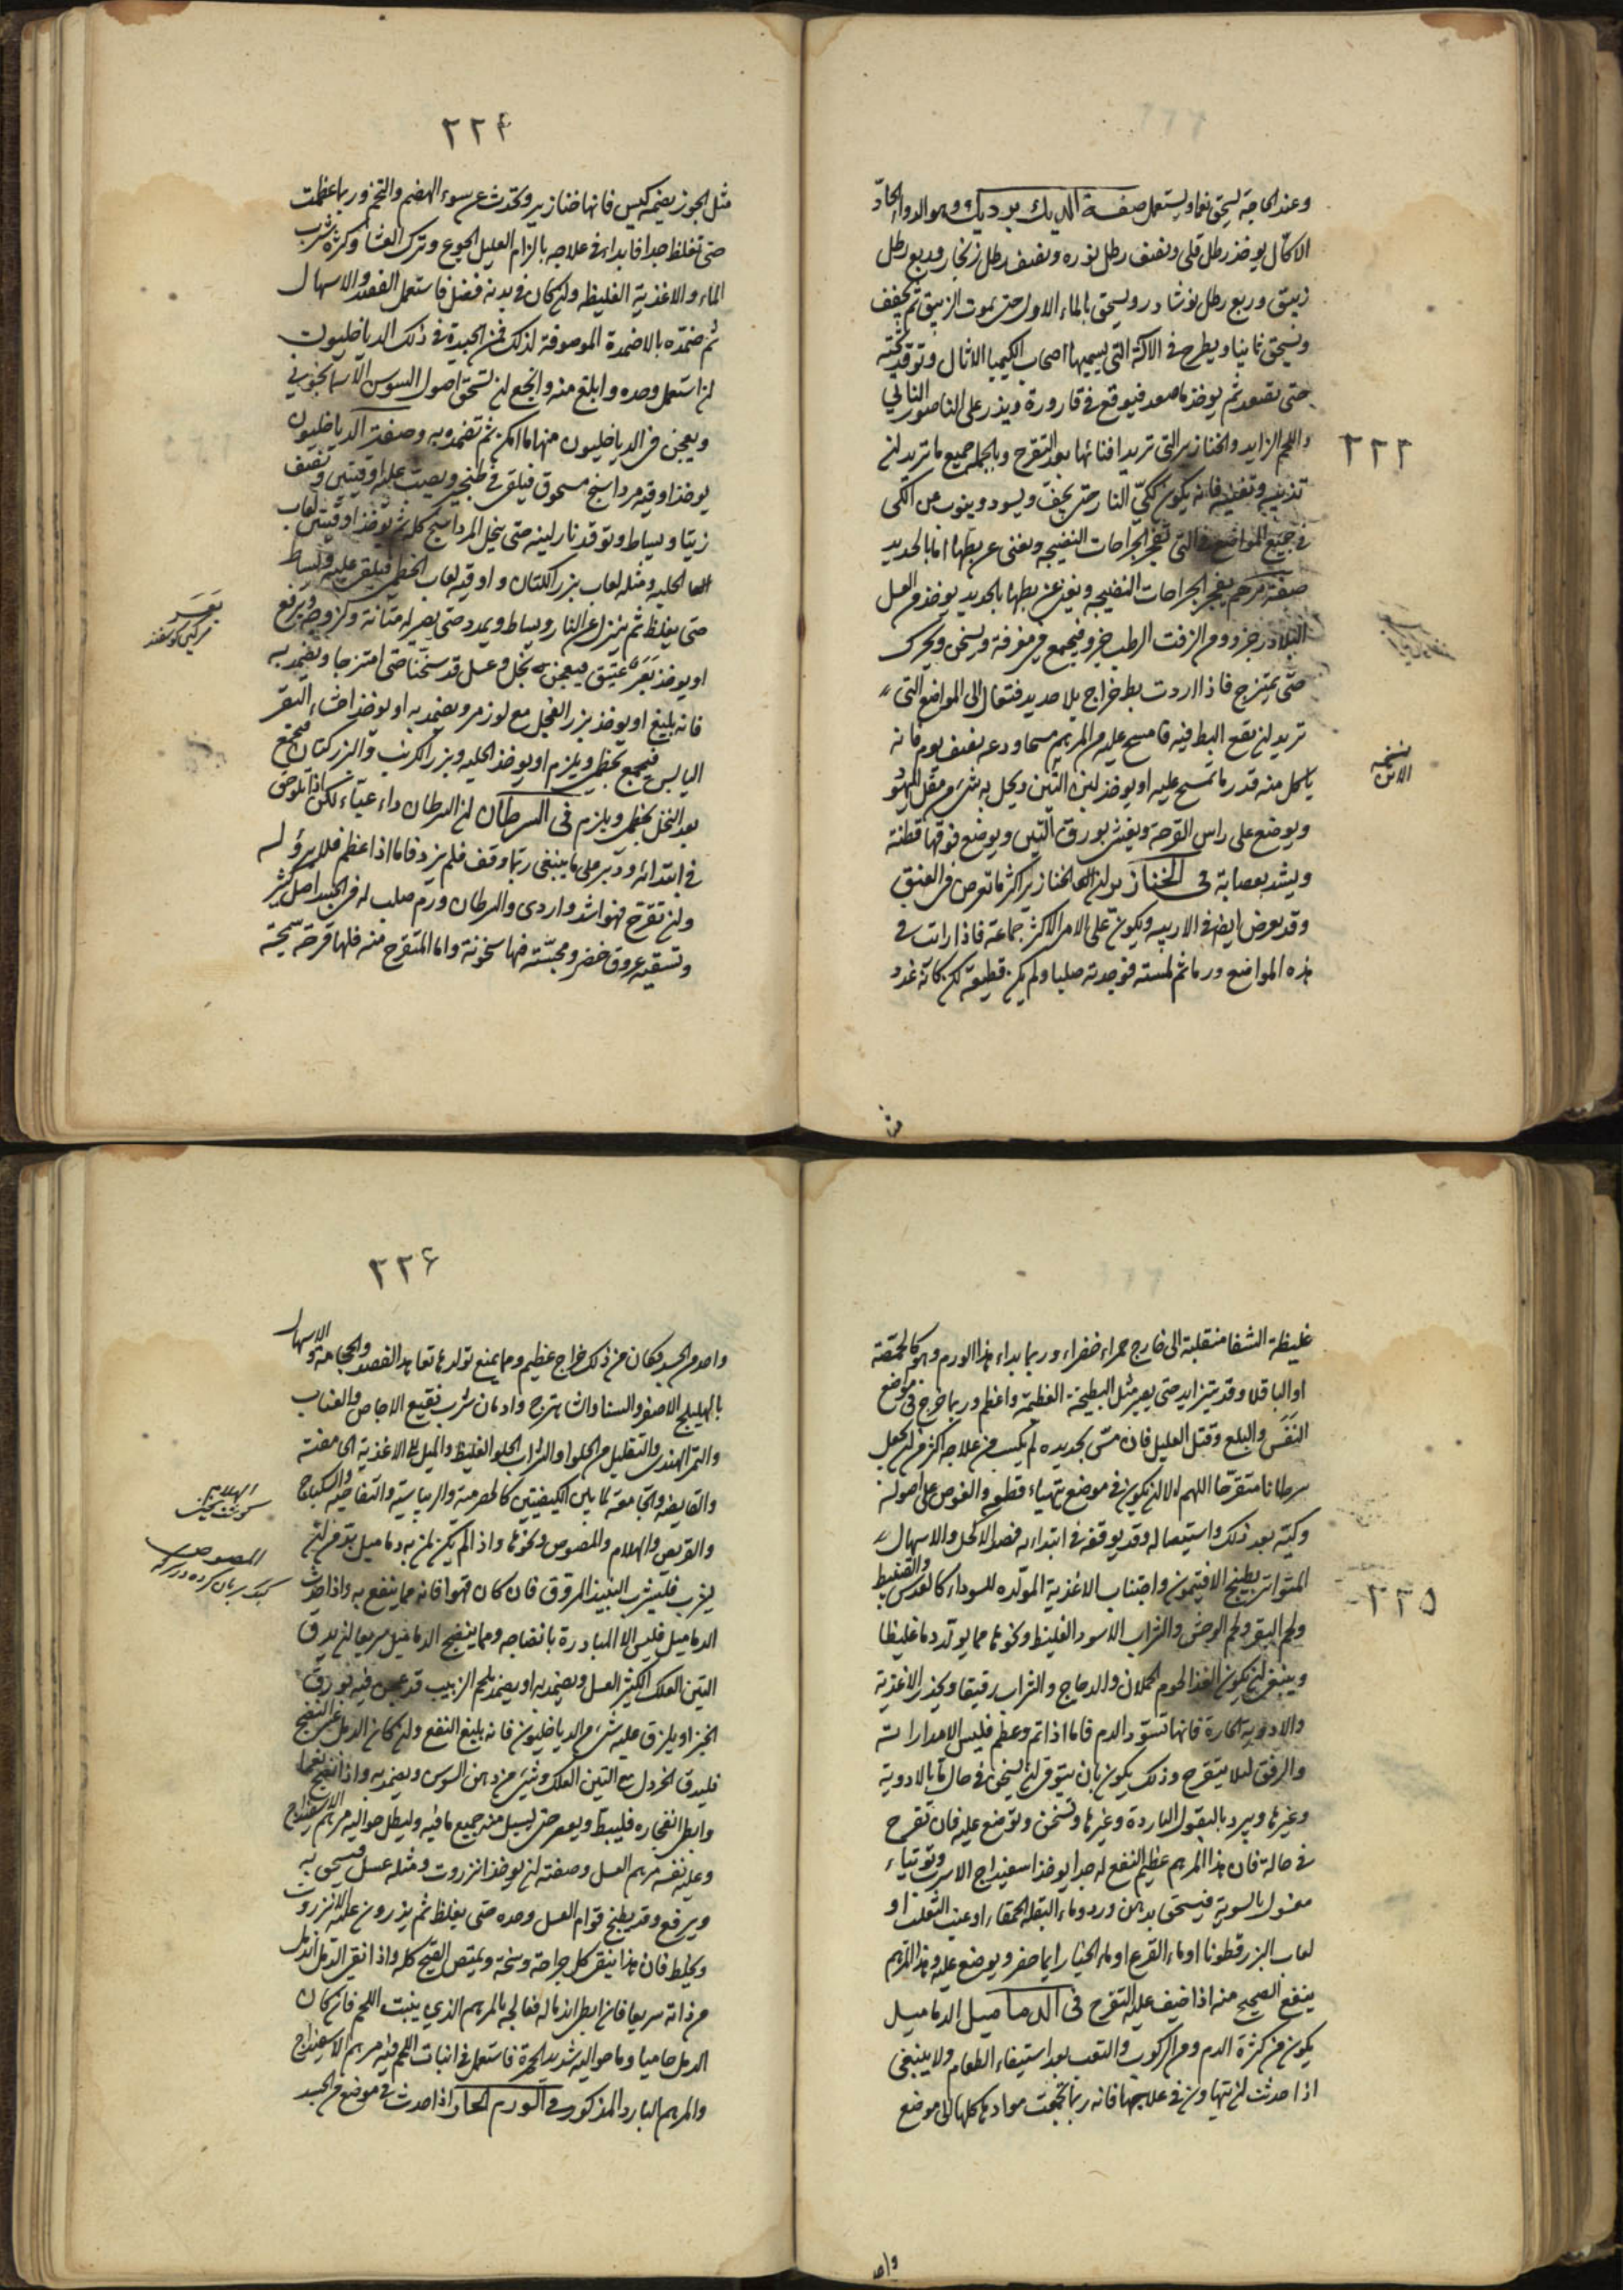 وعند الحاجة يسحق نعما ويستعمل صفة الديك برديك وهو الدواء الحادّ
الاكّال يوخذ رطل قلى ونصف رطل نوره ونصف رطل زنجار وربع رطل
زيبق وربع رطل نوشادر ويسحق بالماء الاول حتى يموت الزيبق ثم يجفف
ويسحق ثانيا ويطرح فى الالة التى يسميها اصحاب الكيميا الاثال وتوقد تحته
حتى تصعد ثم يوخذ ما صعد فيوقع فى قارورة ويذر على الناصور التالي
واللحم الزايد والخنازير التى تريد افنائها بعد التقرح وبالجملة جميع ما تريد ان
٣٣٣
تذيبه وتفنيه فانه يكون ككىّ النار حتى يجفّ ويسود وينوب عن الكى
فى جميع المواضع فى التى تفجر الجراحات النضيجه وتغنى عن بطها اما بالحديد
صفة مرهم يفجر الجراحات النضيجه ويغنى عن بطها بالحديد يوخذ من العسل
البلادر جزء ومن الزفت الرطب جزء فيجمع فى مغرفة ويسخن ويحرك
حتّى يمتزج فاذا اردت بط خراج بلا حديد فتعال الى المواضع التى
تريد ان يقع البط فيه فامسح عليه من المرهم مسحا ودعه نصف يوم فانه
نسخه
الاتن
ياكل منه قدر ما تمسح عليه او يوخذ لبن التّين ويحل به شىء من مقل اليهود
ويوضع على راس القرحة ويغشى بورق التين ويوضع فوقها قطنة
ويشد بعصابة فى الخنازير ان الخنازير اكثر ما تعرض فى العنق
وقد يعرض ايضا فى الاربيه ويكون على الامر الاكثر جماعة فاذا رايت فى
هذه المواضع ورما ثم لمسته فوجدته صلبا ولم يكن قطيعة لكن كانه غدد
مثل
٣٣۴
مثل الجوز يضمه كيس فانها خنازير وتحدث عن سوء الهضم والتخم وربما عظمت
حتى تغلظ جدا فابداء فى علاجه بالزام العليل الجوع وترك العشا وكثرة شرب
الماء والاغذية الغليظه وان كان فى بدنه فضل فاستعمل الفصد والاسهال
ثم ضمّده بالاضمدة الموصوفة لذلك فمن الجيدة فى ذلك الدياخليون
ان استعمل وحده وابلغ منه وانجع ان تسحق اصول السوس الاسمانجونى
ويعجن من الدياخليون منها ما امكن ثم تضمد به وصفة الدياخليون
يوخذ اوقيه مرداسنج مسحوق فيلقى فى طنجير ويصب عليه اوقيتين ونصف
زيتا ويساط وتوقد نار لينه حتى ينحل المرداسنج كله ثم يوخذ اوقيتين لعاب
الحلبه ومثله لعاب بزر الكتان واوقيه لعاب الخطمى فيلقى عليه ويساط
حتى يغلظ ثم ينزل عن النار ويساط ويمدد حتى يصير له متانة ولزوجه ويرفع
بَعَر
سركين كوسفند
او يوخذ بَعَر عتيق فيعجن بخل وعسل قد سخنا حتى امتزجا ويضمد به
فانه بليغ او يوخذ بزر الفجل مع لوز مر ويضمد به او يوخذ اخثاء البقر
اليابس فيجمع بخطمى ويلزم او يوخذ الحلبه وبزر الكرنب والبزر كتان فيجمع
بعد النخل بخطمى ويلزم فى السرطان ان السرطان داء عيّاء لكن اذا تلوحق
فى ابتدائه ودبّر على ما ينبغى ربّما وقف فلم يزد فاما اذا عظم فلا برؤ له
وان تقرح فهو اشد واردى والسرطان ورم صلب له فى الجسد اصل كثير
وتسقيه عروق خضر ومجسّته فيها سخونة واما المتقرح منه فلها قرحة سمجة
غليظة الشفا منقلبة الى خارج حمراء خضراء وربما بداء هذا الورم وهو كالحمّصة
او الباقلا وقد يتزايد حتى يصير مثل البطيخة العظيمة واعظم وربما خرج فى موضع
النفَس والبلع وقتل العليل فان مسّ بحديده لم يكسب من علاجه اكثر من ان يجعل
سرطانا متقرحا اللهم الا ان يكون فى موضع يتهياء قطعه والغوص على اصوله
وكيّه بعد ذلك واستيصاله وقد يوقفه فى ابتداءه فصد الاكحل والاسهال
المتواتر بطبيخ الافتيمون واجتناب الاغذية المولّده للسوداء كالعدس والقنبيط
٣٣٥
ولحم البقر ولحم الوحش والشراب الاسود الغليظ ونحوها مما يولّد دما غليظا
وينبغى ان يكون الغذا لحوم الحملان والدجاج والشراب رقيقا ويحذر الاغذية
والادوية الحارة فانها تسوّد الدم فاما اذا تم وعظم فليس الا مداراته
والرفق لئلا يتقرح وذلك يكون بان يتوقى ان يسخن فى حال ما بالادوية
وغيرها ويبرد بالبقول الباردة وغيرها وتسخن وتوضع عليه فان تقرح
فى حالة فان هذا المرهم عظيم النفع له جدا يوخذ اسفيداج الاسرب وتوتياء
مغسول بالسوية فيسحق بدهن ورد وماء البقلة الحمقاء او عنب الثعلب او
لعاب البزرقطونا او ماء القرع او ماء الخيار ايها حضر ويوضع عليه وهذا المرهم
ينفع الصحيح منه اذا خيف عليه التقرح فى الدماميل الدماميل
يكون من كثرة الدم ومن الركوب والتعب بعد استيفاء الطعام ولا ينبغى
اذا حدثت ان يتهاون فى علاجها فانه ربما تجمعت موادها كلها الى موضع
واحد
٣٣۶
واحد من الجسد فكان من ذلك خراج عظيم ومما يمنع تولدها تعاهد الفصد والحجامة والاسهال
بالهليلج الاصفر والسنا والشاهترج وادمان شرب نقيع الاجاص والعناب
والتمر الهندى والتقليل من الحلوا والشراب الحلو الغليظ والميل الى الاغذية الحامضة
والقابضه والجامعة لهاتين الكيفيتين كالحصرمية والريباسية والتفاحيّه والسكباج
الهلام
كوشت يخنى
والقريص والهلام والمصوص ونحوها واذا لم يكن لمن به دماميل بدّ من ان
المصوص
كبك بريان كرده در سركه
يشرب فليشرب النبيذ المروّق فان كان قهوا فانه مما ينتفع به واذا حدثت
الدماميل فليس الا المبادرة بانضاجه ومما ينضج الدماميل سريعا ان يدق
التين العلك الكثير العسل ويضمد به او يضمد بلحم الزبيب قد عجن فيه بورق
الخبز او يلزق عليه شىء من الدياخليون فانه بليغ النفع وان كان الدمل عسر النضج
فليدق الخردل مع التين العلك وشىء من دهن السوس ويضمد به واذا نضج نعما
وابطا انفجاره فليبط ويعصر حتى يسيل منه جميع ما فيه وليطل حواليه مرهم الاسفيداج
وعليه نفسه مرهم العسل وصفته ان يوخذ انزروت ومثله عسل فيسحق به
ويرفع وقد يطبخ قوام العسل وحده حتى يغلظ ثم يذرون عليه الانزروت
ويخلط فان هذا ينقى كل جراحة وسخة ويمتص القيح كله واذا نقى الدمل اندمل
من ذاته سريعا فان ابطا اندماله فعالجه بالمرهم الذى ينبت اللحم فان كان
الدمل حاميا وما حواليه شديد الحمرة فاستعمل فى انبات اللحم فيه مرهم الاسفيداج
والمرهم البارد المذكور فى الورم الحار اذا حدث فى موضع من الجسد